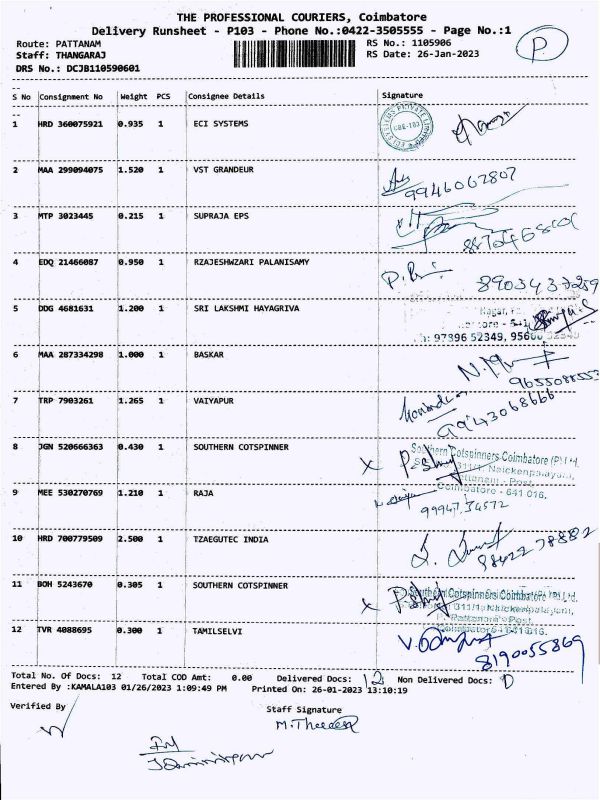 THE PROFESSIONAL COURIERS, Coimbatore
Delivery Runsheet - P103 - Phone No.:0422-3505555 - Page No.:1
P
Route: PATTANAM
RS No.: 1105906
Staff: THANGARAJ
RS Date: 26-Jan-2023
DRS No.: DCJB110590601
S No Consignment No Weight PCS Consignee Details Signature
1 HRD 360075921 0.935 1 ECI SYSTEMS
2 MAA 299094075 1.520 1 VST GRANDEUR
9946062807
3 MTP 3023445 0.215 1 SUPRAJA EPS
4 EDQ 21466087 0.950 1 RZAJESHWZARI PALANISAMY
8903437259
5 DDG 4681631 1.200 1 SRI LAKSHMI HAYAGRIVA
97896 52349,
6 MAA 287334298 1.000 1 BASKAR
9655088553
7 TRP 7903261 1.265 1 VAIYAPUR
9943068666
8 JGN 520666363 0.430 1 SOUTHERN COTSPINNER
Southern Cotspinners Coimbatore (P) Ltd.
311/1, Naickenpalayam,
Pattanam - Post,
Coimbatore - 641 016.
9 MEE 530270769 1.210 1 RAJA
99947 34572
10 HRD 700779509 2.500 1 TZAEGUTEC INDIA
98422 78882
11 BOH 5243670 0.305 1 SOUTHERN COTSPINNER
Southern Cotspinners Coimbatore (P) Ltd.
311/1, Naickenpalayam,
Pattanam - Post,
Coimbatore - 641 016.
12 TVR 4088695 0.300 1 TAMILSELVI
8190055869
Total No. Of Docs: 12 Total COD Amt: 0.00 Delivered Docs: 12 Non Delivered Docs: 0
Entered By :KAMALA103 01/26/2023 1:09:49 PM Printed On: 26-01-2023 13:10:19
Verified By
Staff Signature